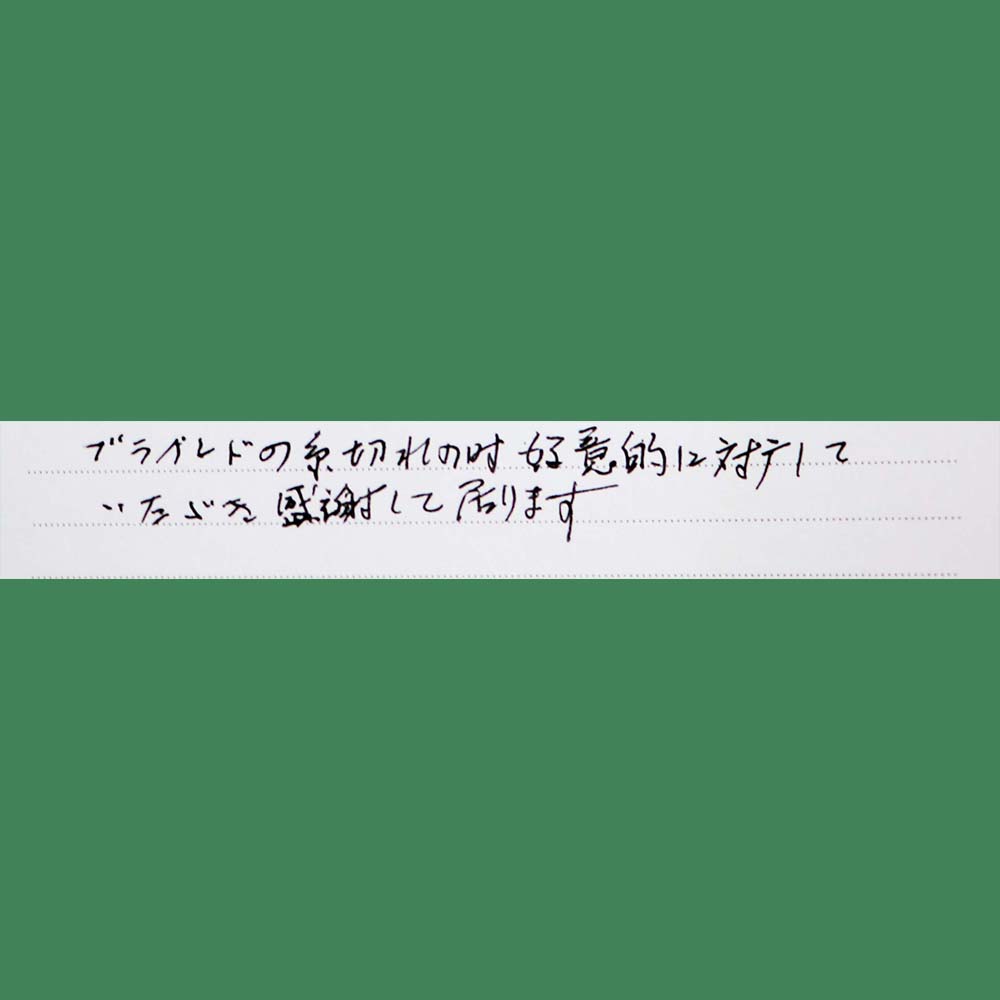 ブラインドの糸切れの時 好意的に対応して
いただき 感謝して居ります